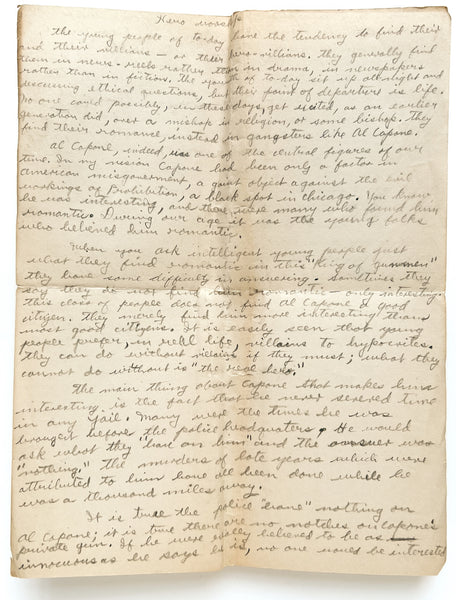 Hero worship
The young people of to-day have the tendency to find their
and their villians - or their hero-villians. They generally find
them in news-reels rather than in drama, in newspapers
rather than in fiction. The youth of to-day sit up all night and
discussing ethical questions, but their point of departure is life.
No one could possibly, in these days, get excited, as an earlier
generation did, over a mishap in religion, or some bishop. They
find their romance, instead in gangsters like Al Capone.
Al Capone, indeed, was one of the central figures of our
time. In my vision Capone had been only a factor in
American misgovernment, a giant object against the evil
workings of Prohibition, a black spot in chicago. You know
he was interesting, and there were many who found him
romantic. During our age it was the young folks
who believed him romantic.
When you ask intelligent young people just
what they find romantic in this "King of gunmen"
they have some difficulty in answering. Sometimes they
say they do not find him romantic, only interesting.
This class of people does not find Al Capone a good
citizen. They merely find him more interesting than
most good cityzens. It is easily seen that young
people prefer, in real life, villains to hypocrites.
They can do without villains if they must; what they
cannot do without is "the real hero."
The main thing about Capone that makes him
interesting is the fact that he never severed time
in any jail. Many were the times he was
brought before the police headquaters. He would
ask what they "had on him" and the answer was
"nothing." The murders of late years which were
attributed to him have all been done while he
was a thousand miles away.
It is true the police "have" nothing on
Al Capone; it is true there are no notches on Capone's
private gun. If he were really believed to be as
innocuous as he says he is, no one would be interested